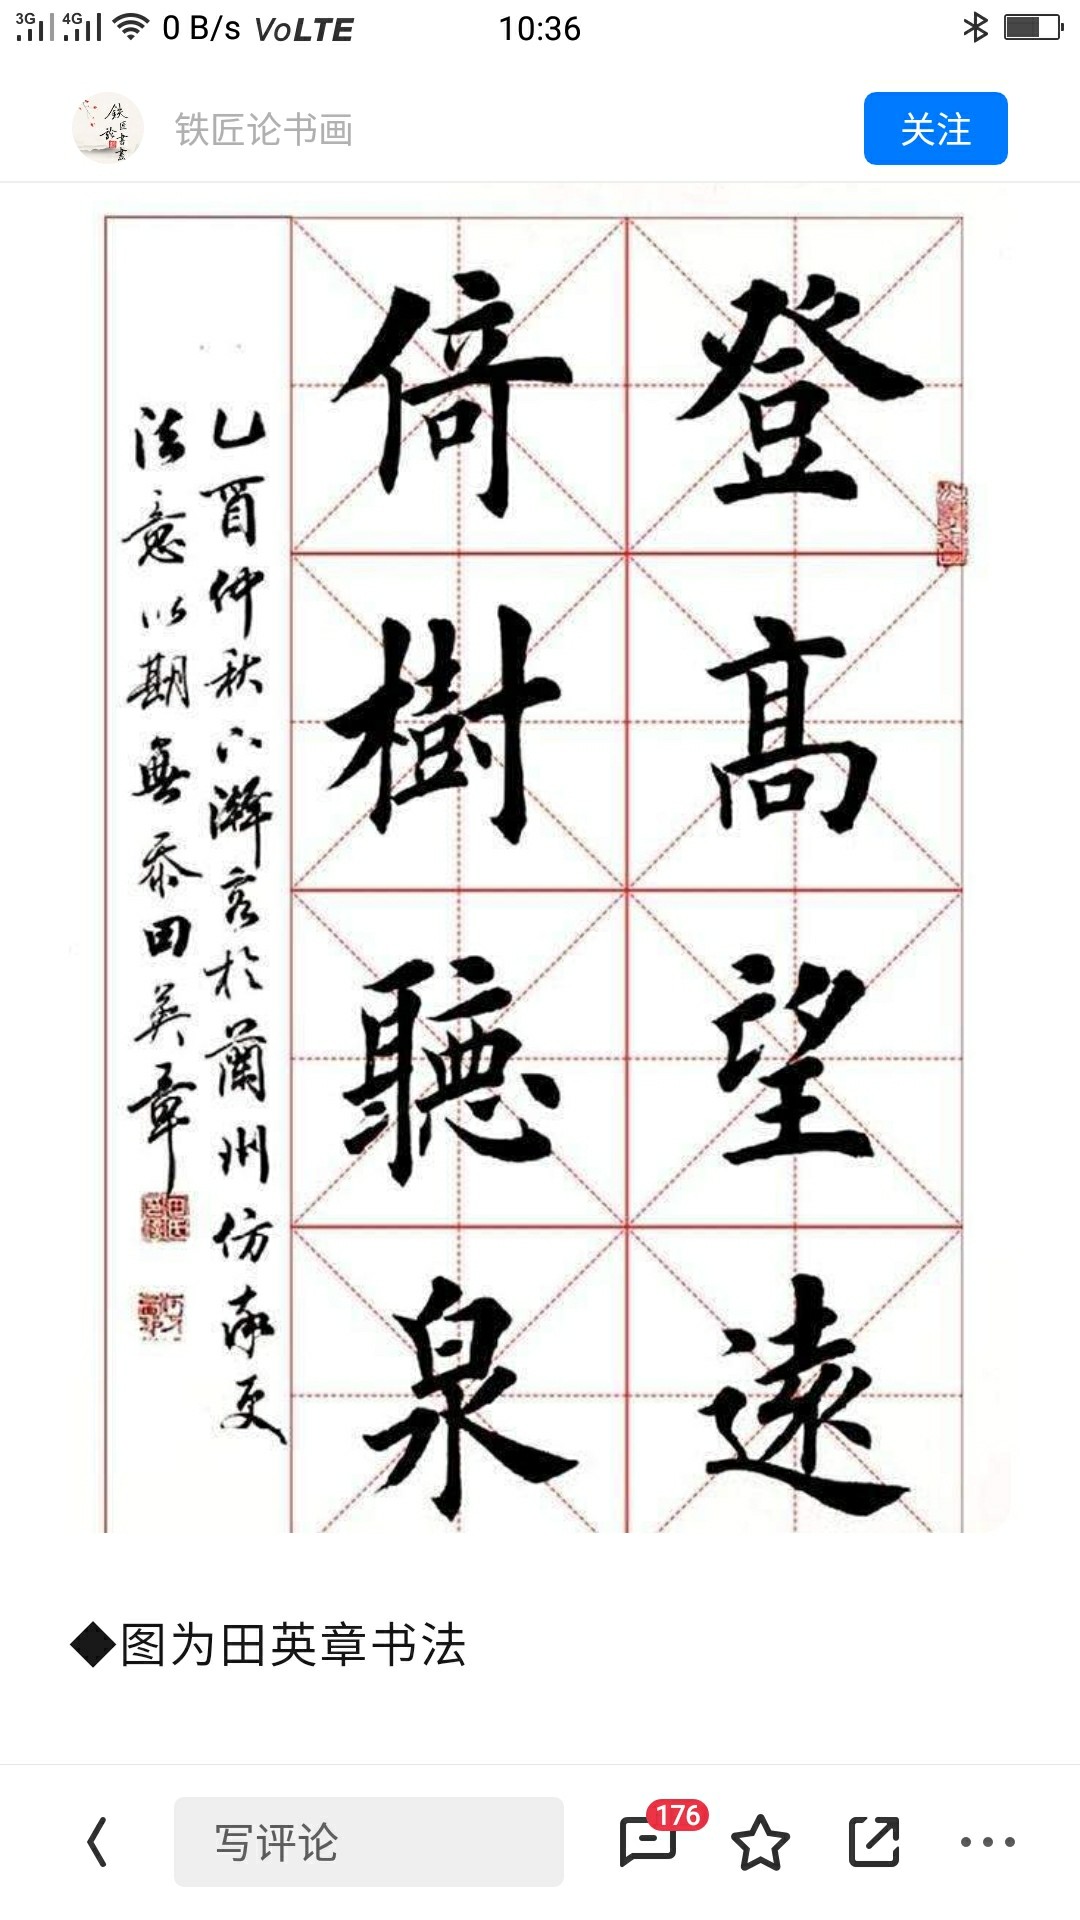 3G 4G 0 B/s VoLTE 10:36
铁匠论书画
关注
登高望遠
倚樹聽泉
乙酉仲秋下瀚客於蘭州仿率更
法意以期無忝田英章
◆图为田英章书法
写评论
176